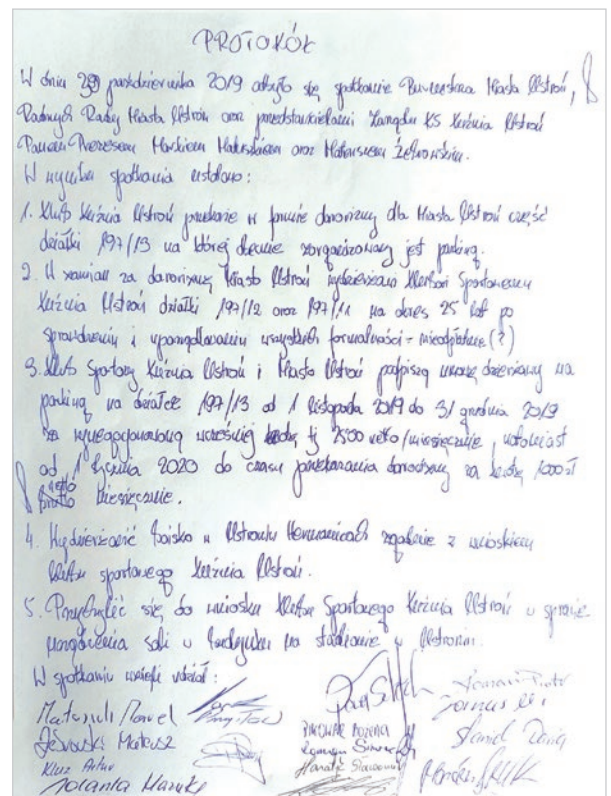 PROTOKÓŁ
W dniu 29 października 2019 odbyło się spotkanie Burmistrza Miasta Ustroń,
Radnych Rady Miasta Ustroń oraz przedstawicielami Zarządu KS Kuźnia Ustroń
Panem Prezesem oraz Mateuszem Żebrowskim.
W wyniku spotkania ustalono:
1. Klub Kuźnia Ustroń przekaże w formie darowizny dla Miasta Ustroń część
działki 197/13 na której obecnie zorganizowany jest parking.
2. W zamian za darowiznę Miasto Ustroń wydzierżawi Klubowi Sportowemu
Kuźnia Ustroń działki 197/12 oraz 197/11 na okres 25 lat po
sprawdzeniu i uporządkowaniu wszystkich formalności - nieodpłatnie (?)
3. Klub Sportowy Kuźnia Ustroń i Miasto Ustroń podpiszą umowę dzierżawy na
parking na działce 197/13 od 1 listopada 2019 do 31 grudnia 2019
za wynegocjonowaną wcześniej tj 2500 netto/miesięcznie, natomiast
od 1 stycznia 2020 do czasu przekazania darowizny za kwotę 1000 zł
netto
brutto miesięcznie.
4. Wydzierżawić boisko w Ustroniu Hermanicach zgodnie z wnioskiem
klubu sportowego Kuźnia Ustroń.
5. Przychylić się do wniosku Klubu Sportowego Kuźnia Ustroń w sprawie
urządzenia sali w budynku na stadionie w Ustroniu.
W spotkaniu wzięli udział:
Mateusz
Artur
Jolanta